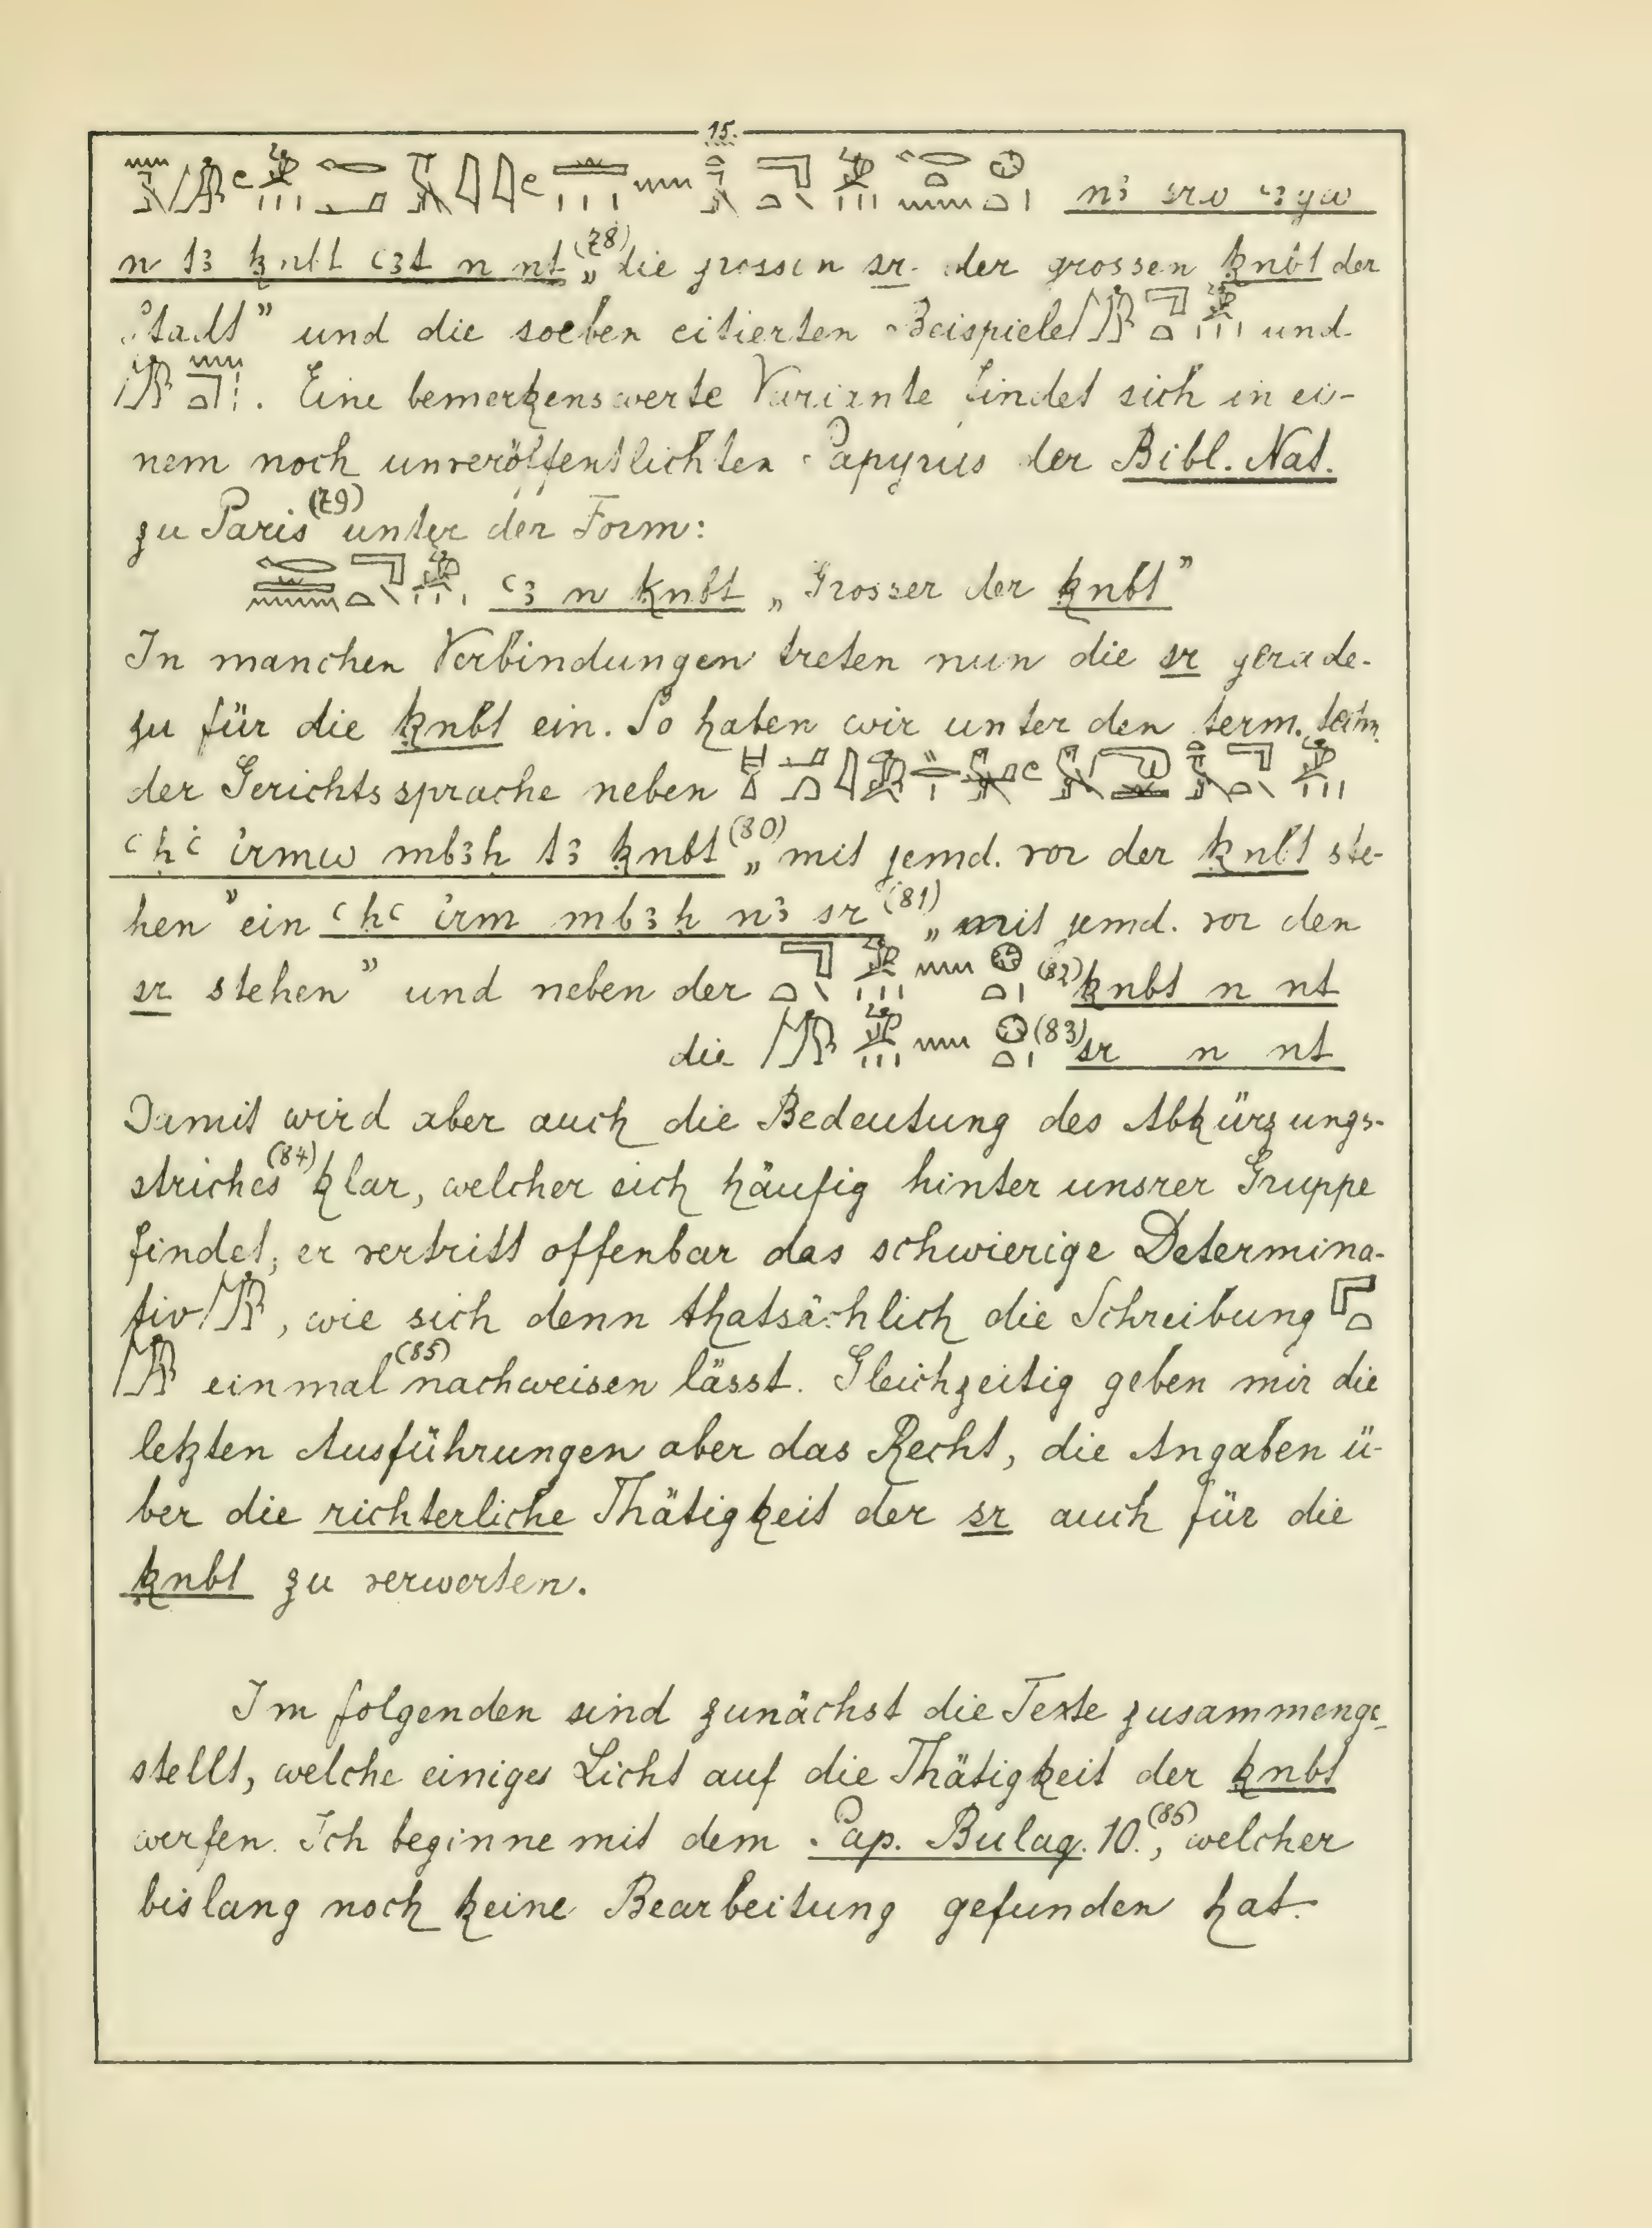 15.
n3 srw ꜥ3yw
n t3 ḳnbt ꜥ3t n nt (78) „die grossen sr der grossen ḳnbt der
Stadt” und die soeben citierten Beispiele und
. Eine bemerkenswerte Variante findet sich in ei-
nem noch unveröffentlichten Papyrus der Bibl. Nat.
zu Paris (79) unter der Form:
ꜥ3 n ḳnbt „Grosser der ḳnbt”
In manchen Verbindungen treten nun die sr gerade-
zu für die ḳnbt ein. So haben wir unter den term. techn.
der Gerichtssprache neben
ꜥḥꜥ irmw mb3ḥ t3 ḳnbt (80) „mit jemd. vor der ḳnbt ste-
hen” ein ꜥḥꜥ irm mb3ḥ n3 sr (81) „mit jemd. vor den
sr stehen” und neben der (82) ḳnbt n nt
die (83) sr n nt
Damit wird aber auch die Bedeutung des Abkürzungs-
striches (84) klar, welcher sich häufig hinter unsrer Gruppe
findet; er vertritt offenbar das schwierige Determina-
tiv , wie sich denn thatsächlich die Schreibung
einmal (85) nachweisen lässt. Gleichzeitig geben mir die
letzten Ausführungen aber das Recht, die Angaben ü-
ber die richterliche Thätigkeit der sr auch für die
ḳnbt zu verwerten.
Im folgenden sind zunächst die Texte zusammenge-
stellt, welche einiges Licht auf die Thätigkeit der ḳnbt
werfen. Ich beginne mit dem Pap. Bulaq. 10. (86), welcher
bislang noch keine Bearbeitung gefunden hat.